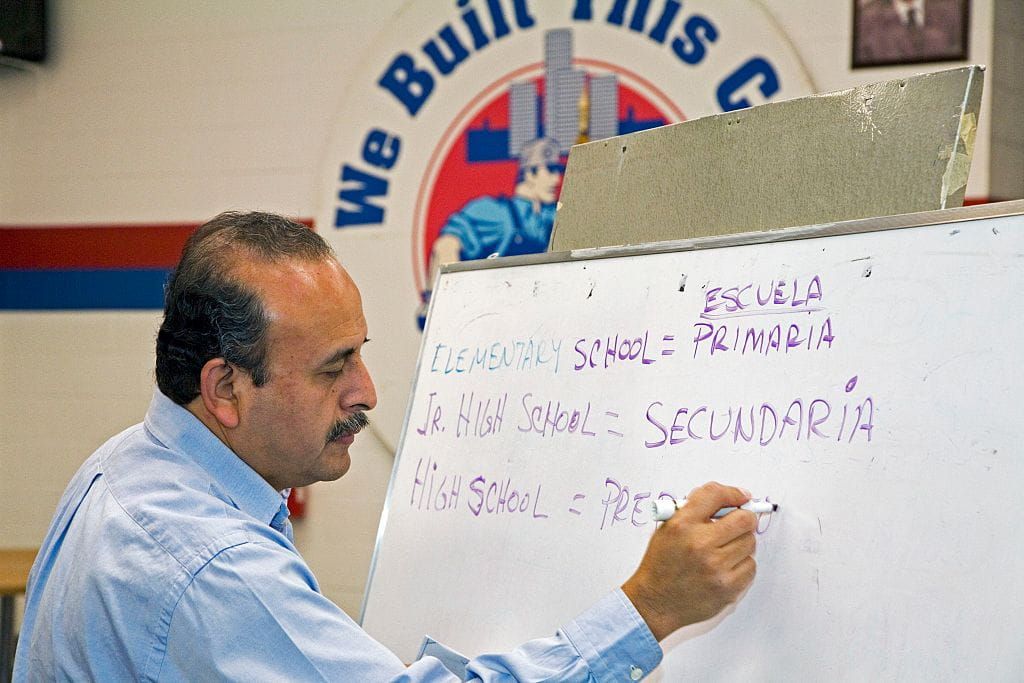 We Built This C
ESCUELA
ELEMENTARY SCHOOL = PRIMARIA
Jr. HIGH SCHOOL = SECUNDARIA
HIGH SCHOOL = PRE